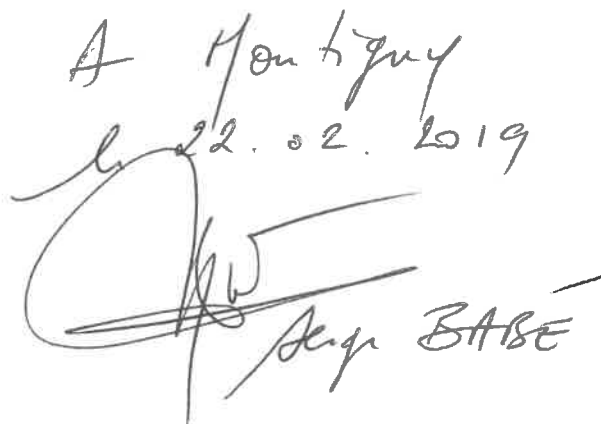 A Montigny
le 22.02.2019
Serge BABÉ